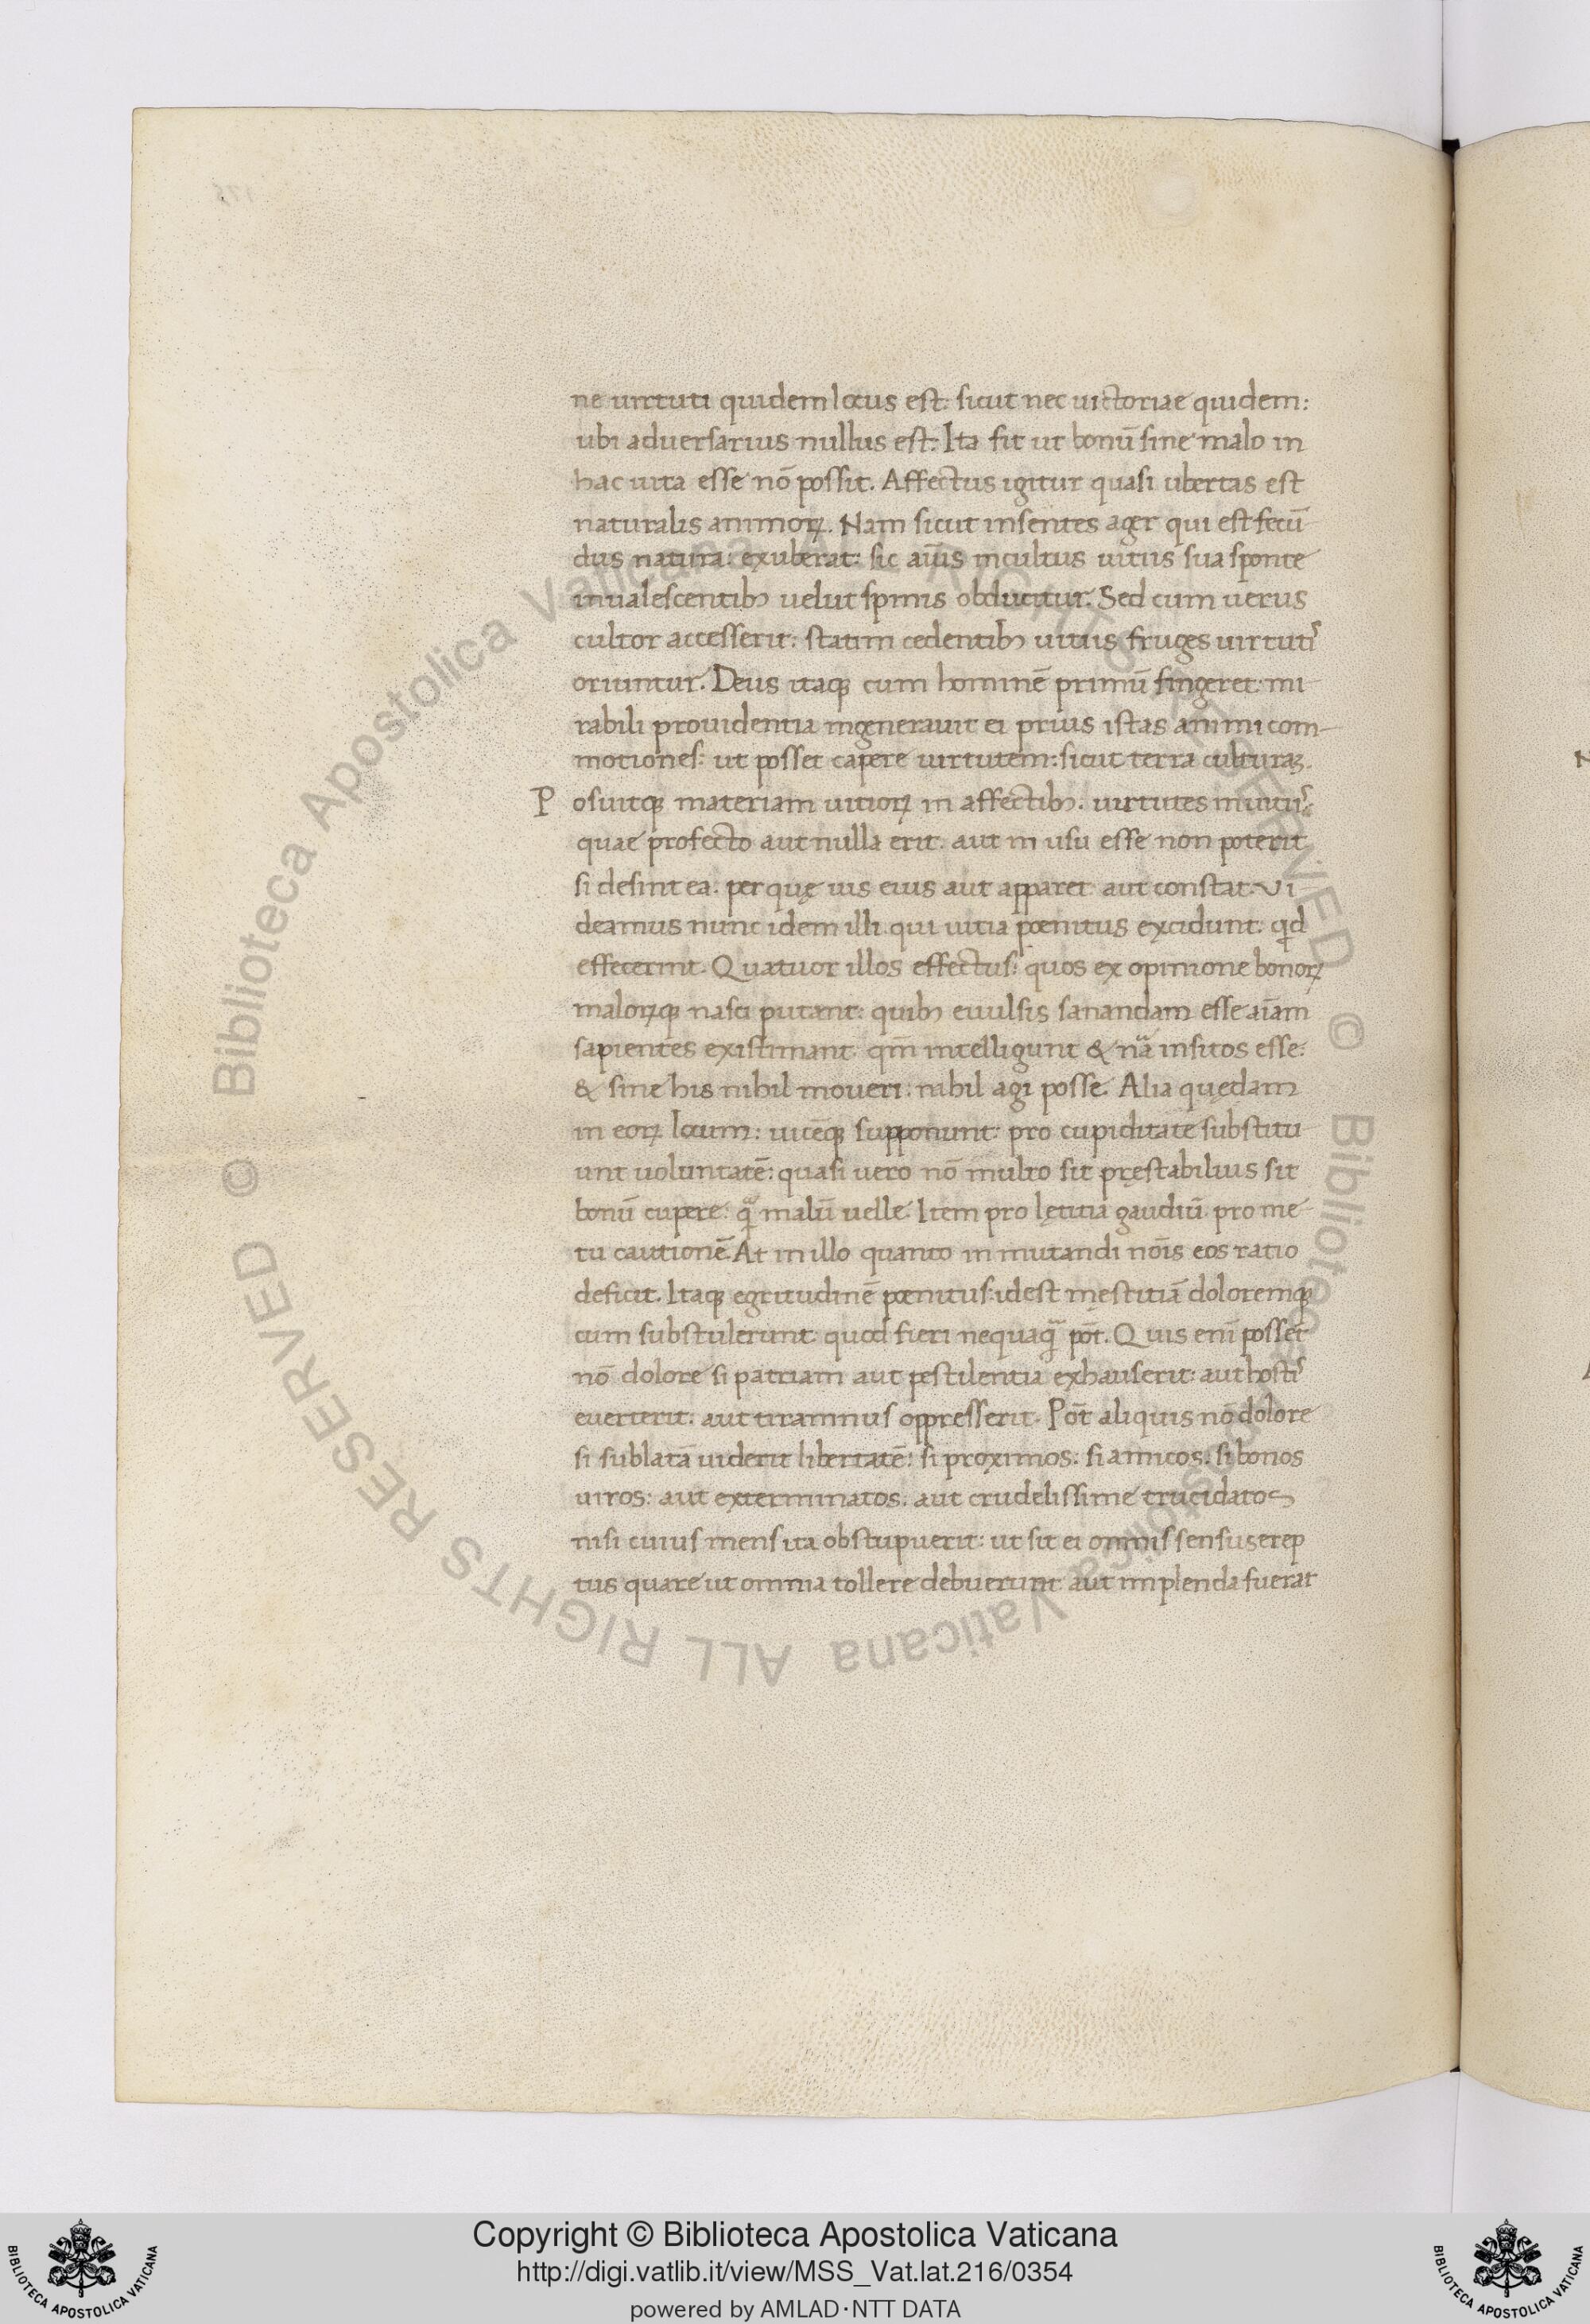 ne uirtuti quidem locus est: sicut nec uictoriae quidem:
ubi aduersarius nullus est: Ita fit ut bonū sine malo in
hac uita esse nō possit. Affectus igitur quasi ubertas est
naturalis animoꝝ. Nam sicut in sentes ager qui est fecū
dus natura: exuberat: sic aīus incultus uitiis sua sponte
inualescentibꝫ uelut spinis obducitur. Sed cum uerus
cultor accesserit: statim cedentibꝫ uitiis fruges uirtutis
oriuntur. Deus itaqꝫ cum hominē primū fingeret: mi
rabili prouidentia ingenerauit ei prius istas animi com-
motiones: ut posset capere uirtutem: sicut terra culturaꝫ.
Posuitqꝫ materiam uitioꝝ in affectibꝫ. uirtutes in uitiis
quae profecto aut nulla erit. aut in usu esse non poterit
si desint ea. per quę uis eius aut apparet aut constat. Vi-
deamus nunc idem illi qui uitia poenitus excidunt: qd
effecerint. Quatuor illos effectus: quos ex opinione bonoꝝ
maloꝝqꝫ nasci putant: quibꝫ euulsis sanandam esse aīam
sapientes existimant qm̄ intelligunt & nā insitos esse:
& sine his nihil moueri: nihil agi posse. Alia quędam
in eoꝝ locum: uicēqꝫ supponunt: pro cupiditate substitu
unt uoluntatē: quasi uero nō multo sit pręstabilius sit
bonū cupere: qꝫ malū uelle. Item pro lętitia gaudiū. pro me
tu cautionē. At in illo quanto in mutandi nōis eos ratio
deficit. Itaqꝫ egritudinē poenitus: idest męstitiā doloremqꝫ
cum substulerunt quod fieri nequaqꝫ pōt. Quis enī posset
nō dolore si patriam aut pestilentia exhauserit: aut hostis
euerterit: aut tirannus oppresserit. Pōt aliquis nō dolore
si sublatā uiderit libertatē: si proximos: si amicos: si bonos
uiros: aut exterminatos: aut crudelissime trucidatos
nisi cuius mens ita obstupuerit: ut sit ei omnis sensus erep
tus quare ut omnia tollere debuerunt aut implenda fuerat
Copyright © Biblioteca Apostolica Vaticana
http://digi.vatlib.it/view/MSS_Vat.lat.216/0354
powered by AMLAD·NTT DATA